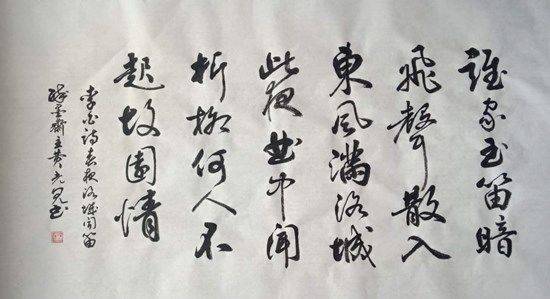 誰家玉笛暗
飛聲散入
東風滿洛城
此夜曲中聞
折柳何人不
起故園情
李白詩春夜洛城聞笛
墨齋主